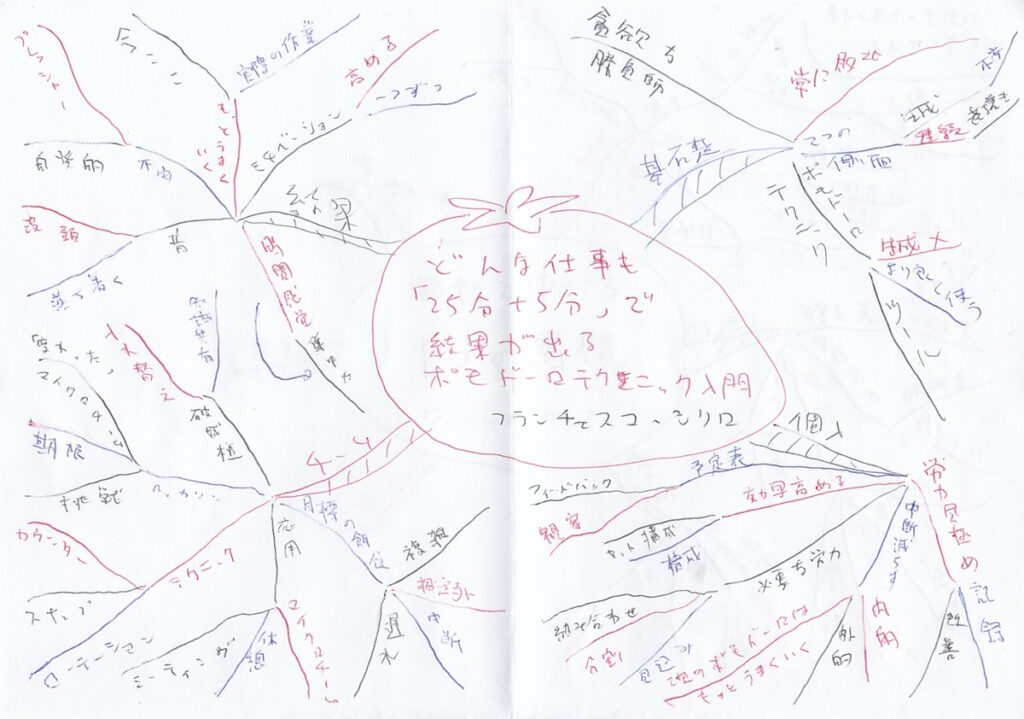 どんな仕事も
「25分+5分」で
結果が出る
ポモドーロテクニック入門
フランチェスコ・シリロ
基礎
貪欲な
勝負師
常に
2つの
側面
ポモドーロ
テクニック
達成
継続
不安
より良く使う
ツール
個人
労力見極め
記録
改善
中断減らす
内的
外的
必要な労力
組み合わせ
分割
見込み
次のポモドーロは
もっとうまくいく
効果高める
セット構成
構成
予定表
フィードバック
観察
チーム
目標の
複雑
想定外
中断
遅れ
応用
マイクロチーム
休憩
ミーティング
テクニック
カウンター
スナップ
ローテーション
ハッカソン
挑戦
期限
マイクロチーム
入れ替え
知識共有
結果
時間感覚
集中力
音
落ち着く
不安
自発的
プレッシャー
もっとうまく
いく
今ここ
実際の作業
モチベーション
高める
一つずつ